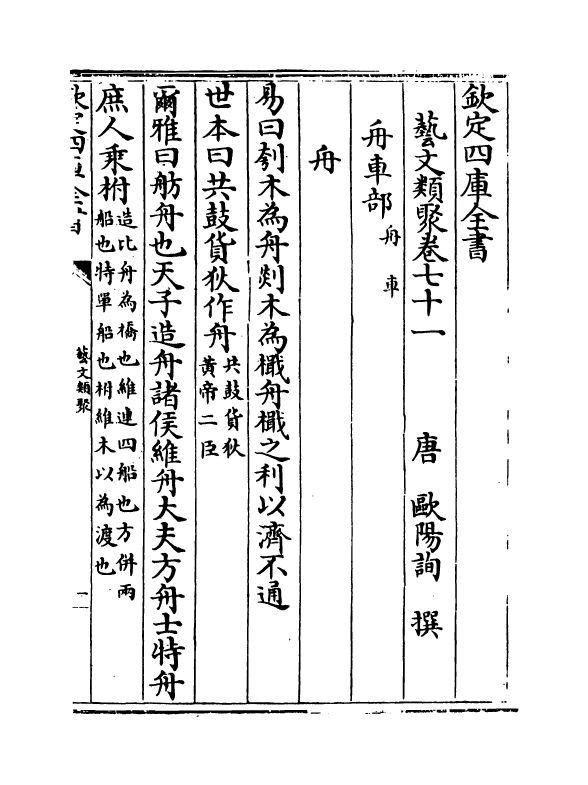 欽定四庫全書
藝文類聚卷七十一 唐 歐陽詢 撰
舟車部 舟 車
舟
易曰刳木為舟剡木為檝舟檝之利以濟不通
世本曰共鼓貨狄作舟 共鼓貨狄黃帝二臣
爾雅曰舫舟也天子造舟諸侯維舟大夫方舟士特舟
庶人乘柎 造比舟為橋也維連四船也方併兩船也特單船也柎維木以為渡也
欽定四庫全書
藝文類聚
一